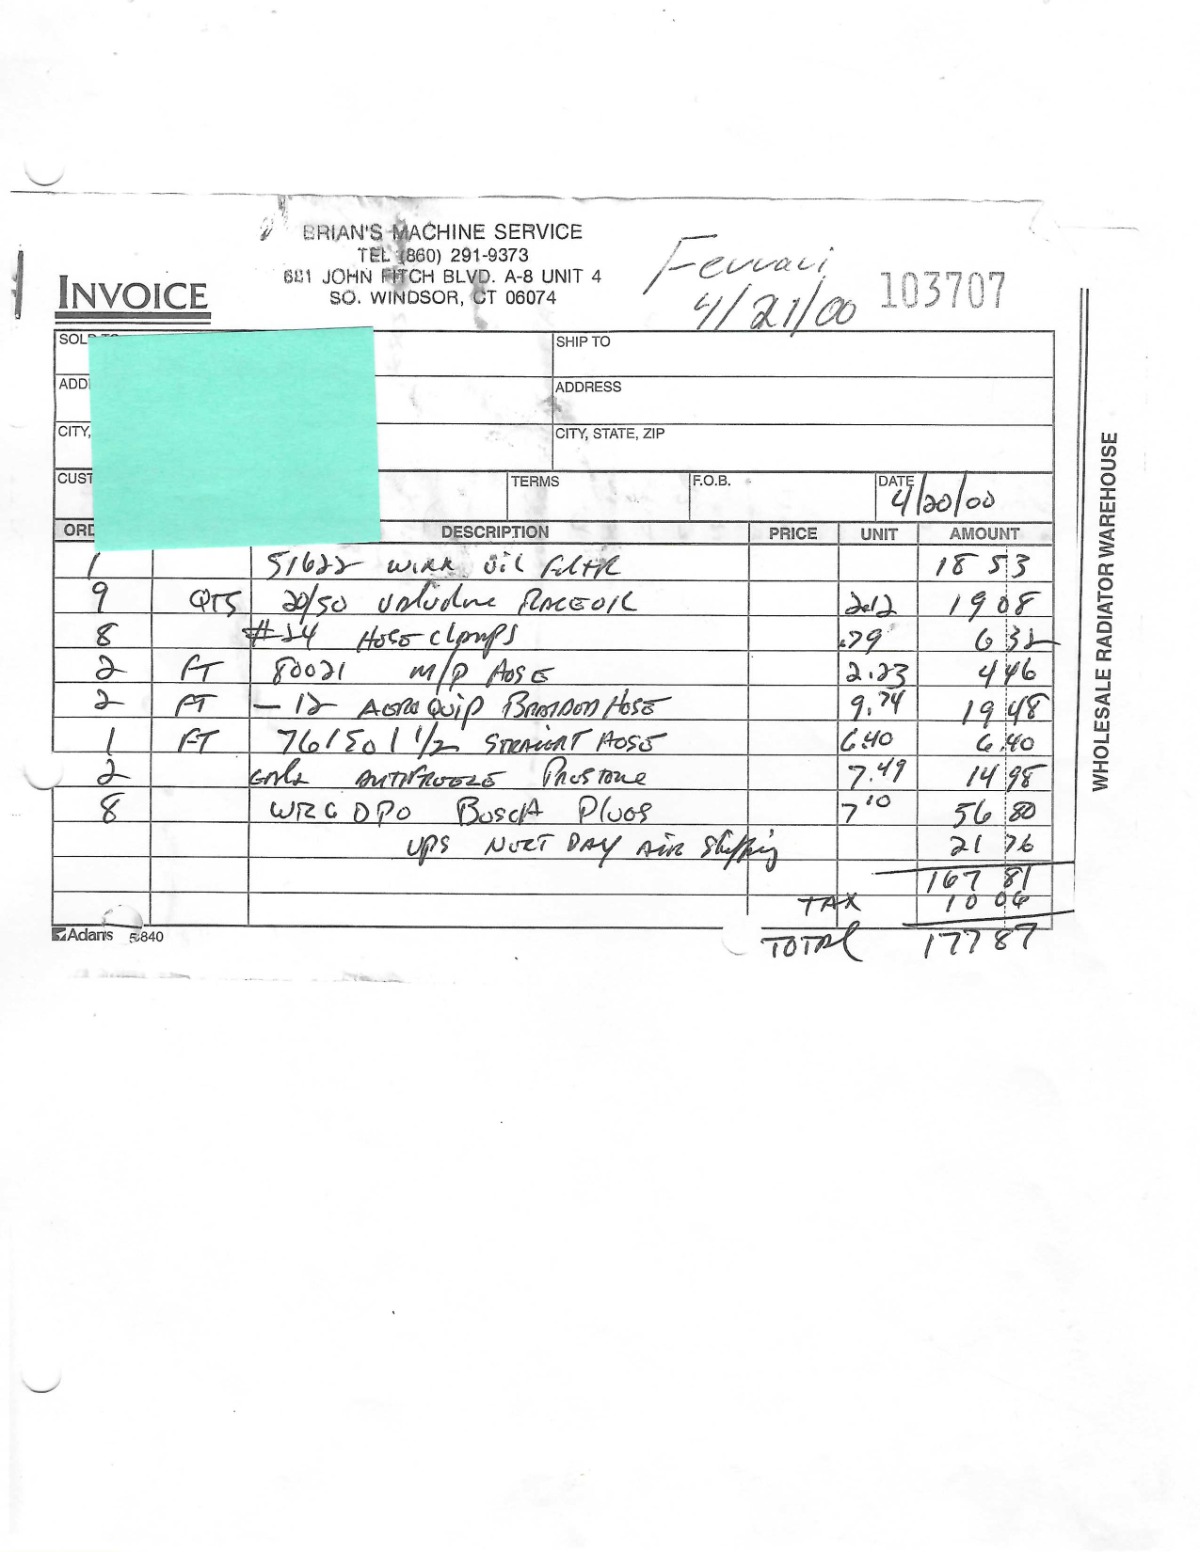 BRIAN'S MACHINE SERVICE
TEL (860) 291-9373
681 JOHN FITCH BLVD. A-8 UNIT 4
SO. WINDSOR, CT 06074
INVOICE
Ferrari
4/21/00
103707
SOLD TO
SHIP TO
ADD
ADDRESS
CITY,
CITY, STATE, ZIP
CUST
TERMS
F.O.B.
DATE
4/20/00
ORD DESCRIPTION PRICE UNIT AMOUNT
1 51622 WIXX OIL FILTR 18 53
9 QTS 20/50 Valvoline RACE OIL 2.12 19 08
8 #24 HOSE Clamps .79 6 32
2 FT 80021 M/P HOSE 2.23 4 46
2 FT - 12 AEROQUIP BRAIDED HOSE 9.74 19 48
1 FT 761501 1/2 STRAIGHT HOSE 6.40 6.40
2 GALS ANTIFREEZE PRESTONE 7.49 14 98
8 WR6DPO BOSCH PLUGS 7 10 56 80
UPS NEXT DAY AIR Shipping 21 76
167 81
TAX 10 06
TOTAL 177 87
Adams 5840
WHOLESALE RADIATOR WAREHOUSE